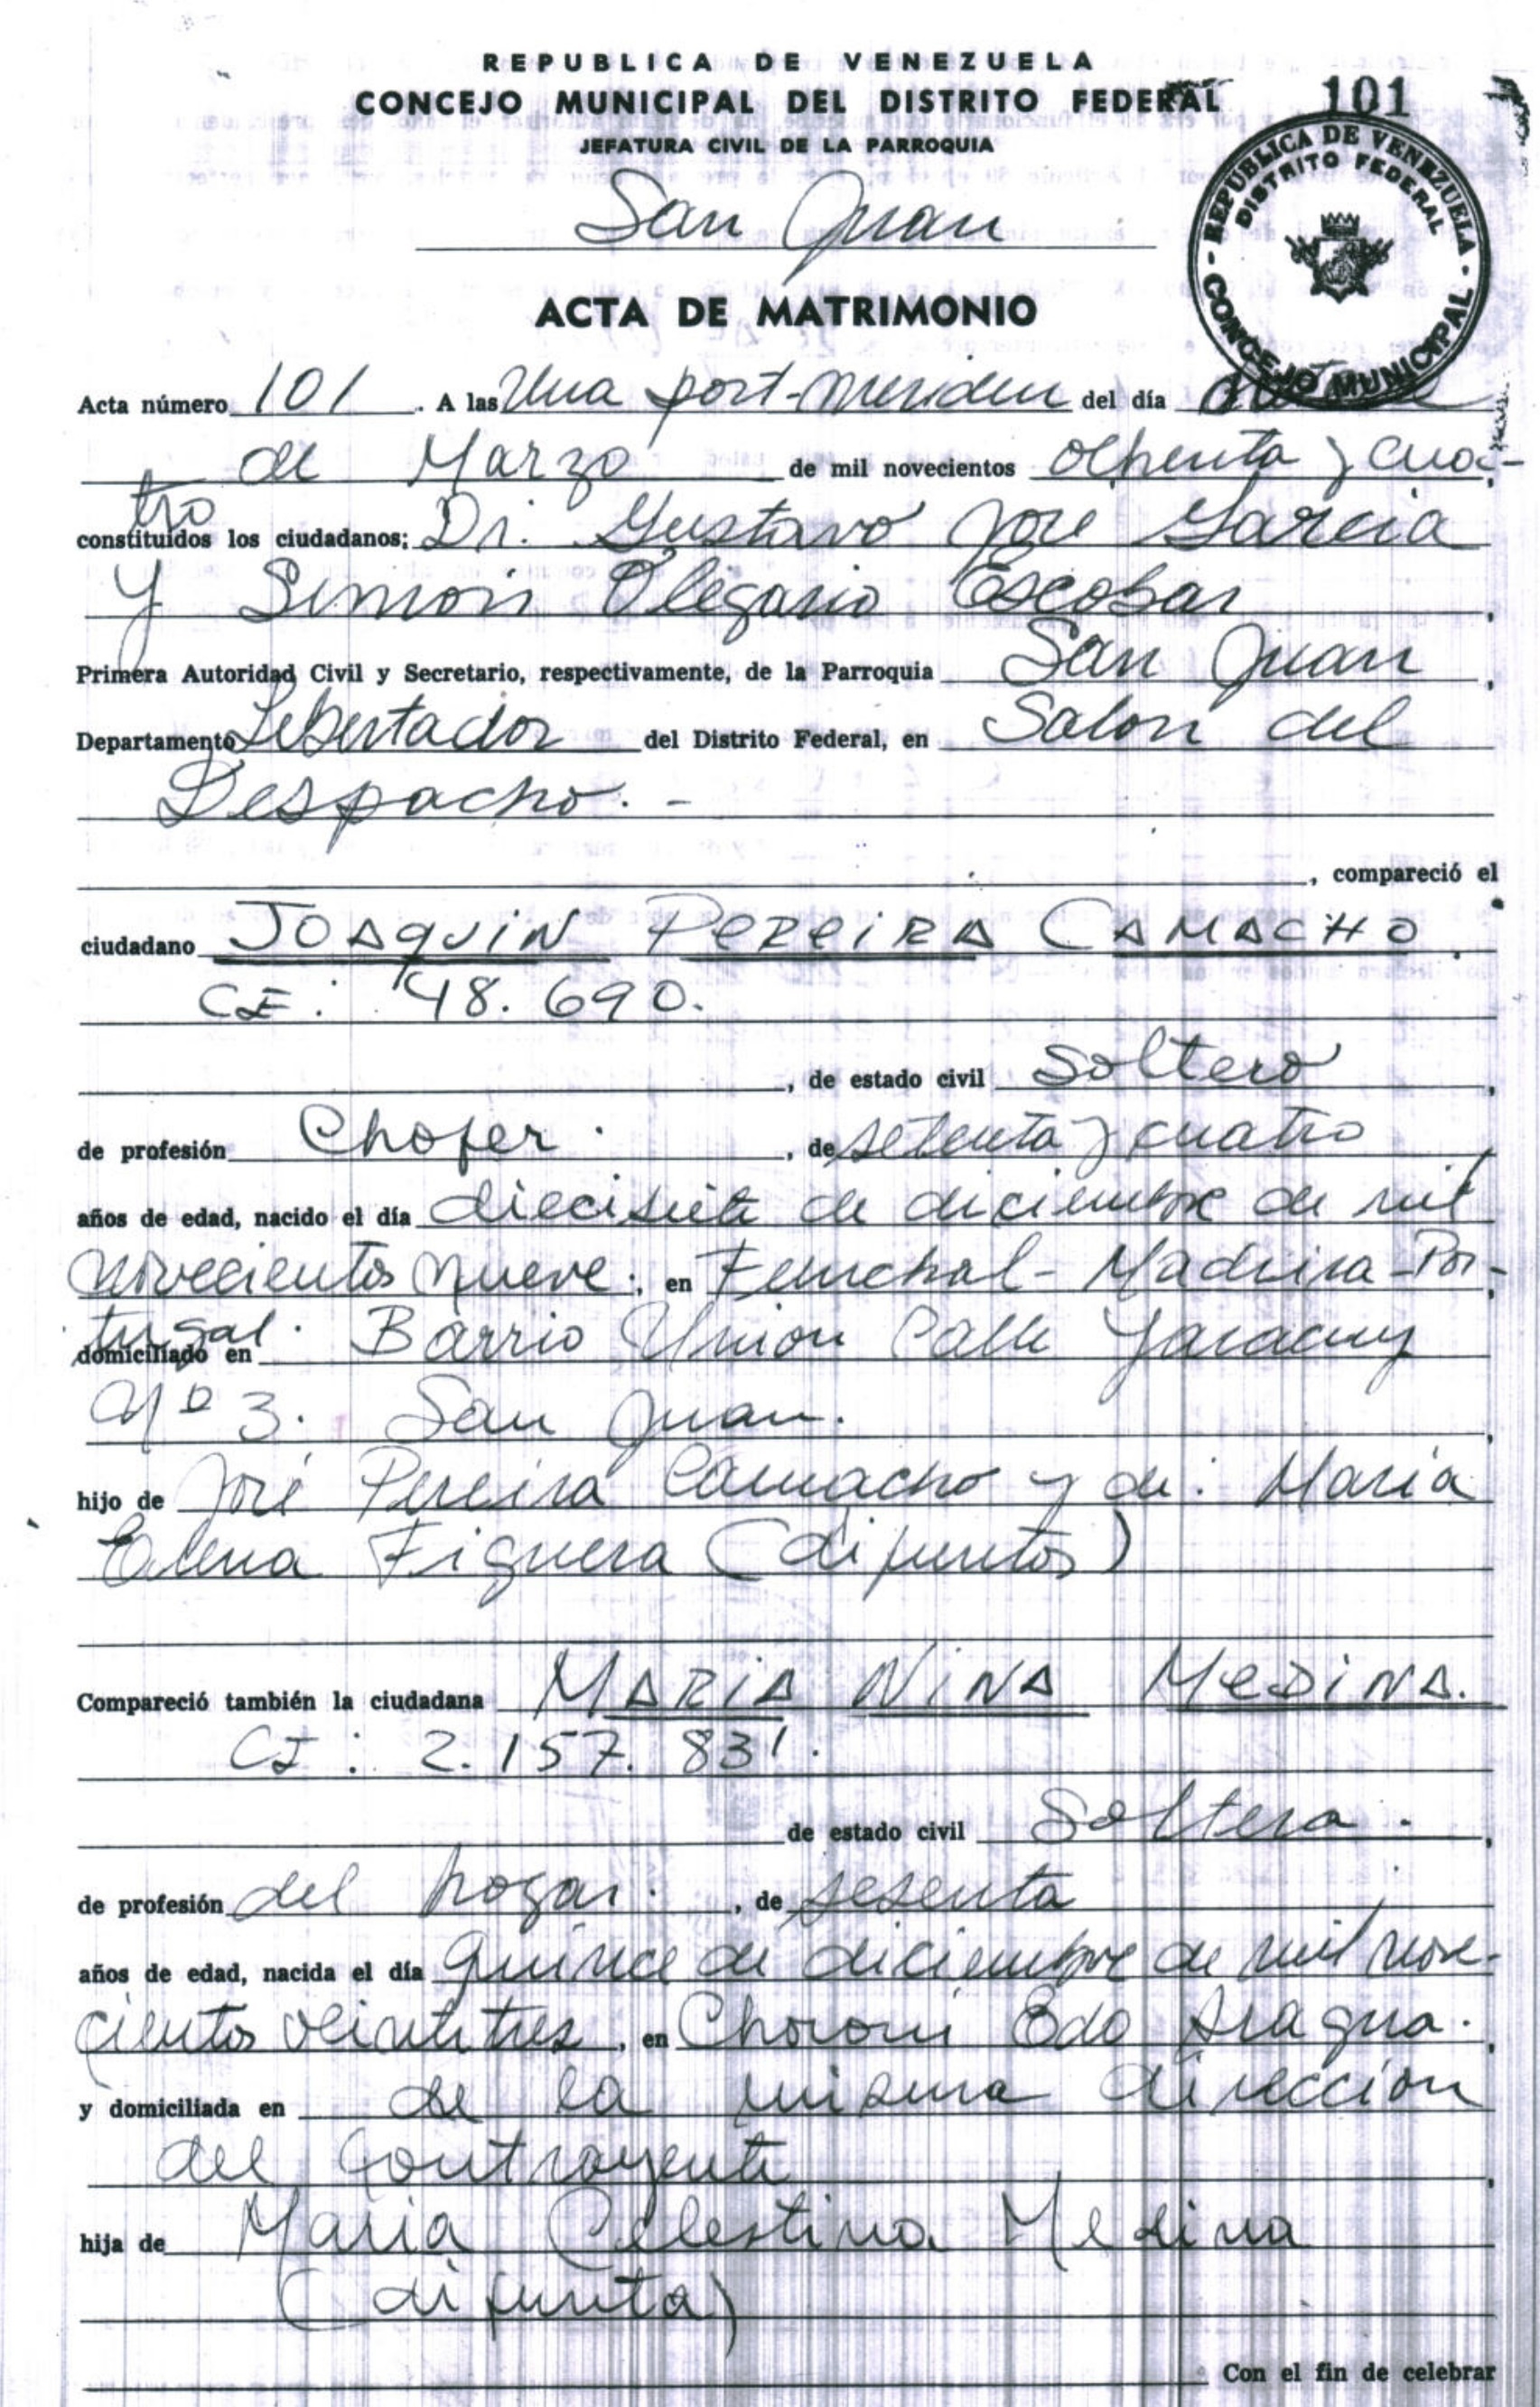 REPUBLICA DE VENEZUELA
CONCEJO MUNICIPAL DEL DISTRITO FEDERAL 101
JEFATURA CIVIL DE LA PARROQUIA
San Juan
REPUBLICA DE VENEZUELA - CONCEJO MUNICIPAL -
DISTRITO FEDERAL
ACTA DE MATRIMONIO
Acta número 101. A las Una post-meridem del día
de Marzo de mil novecientos ochenta y cua-
tro
constituídos los ciudadanos; Dr. Gustavo José Garcia
y Simón Olegario Escobar,
Primera Autoridad Civil y Secretario, respectivamente, de la Parroquia San Juan,
Departamento Libertador del Distrito Federal, en Salon del
Despacho. -
, compareció el
ciudadano JOAQUIN PEREIRA CAMACHO.
CE: 48.690.
, de estado civil Soltero,
de profesión Chofer. , de setenta y cuatro
años de edad, nacido el día diecisiete de diciembre de mil
novecientos nueve, en Feunchal - Madeira - Por-
tugal.
domiciliado en Barrio Union Calle Yaracuy
Nº 3. San Juan.
hijo de José Pereira Camacho y de: Maria
Elena Figuera (difuntos)
Compareció también la ciudadana MARIA NINA MEDINA.
CI: 2.157.831.
de estado civil Soltera.,
de profesión del hogar. , de sesenta
años de edad, nacida el día quince de diciembre de mil nove-
cientos veintitres, en Choroni Edo Aragua.
y domiciliada en de la misma dirección
del contrayente,
hija de Maria Celestina Medina
(difunta)
Con el fin de celebrar